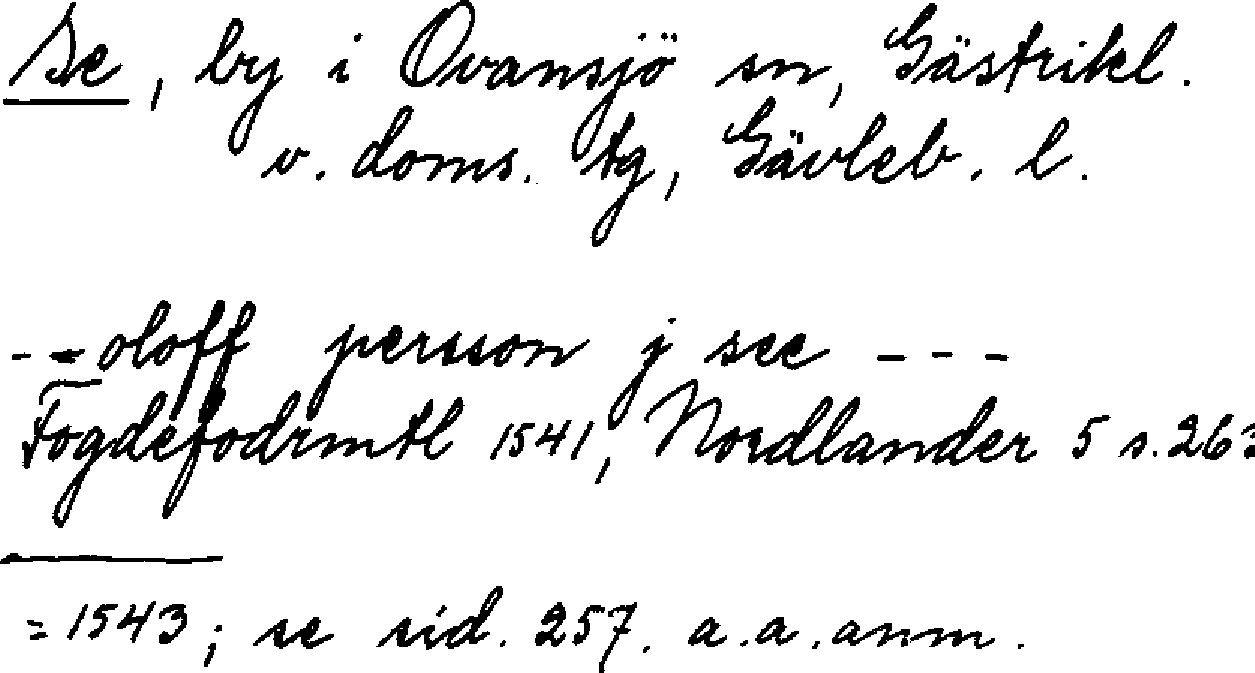 Se, by i Ovansjö sn, Gästrikl.
v. doms. tg, Gävleb. l.
--- oloff persson j see ---
Fogdefodrmtl 1541, Nordlander 5 s. 263
= 1543; se sid. 257. a.a. anm.